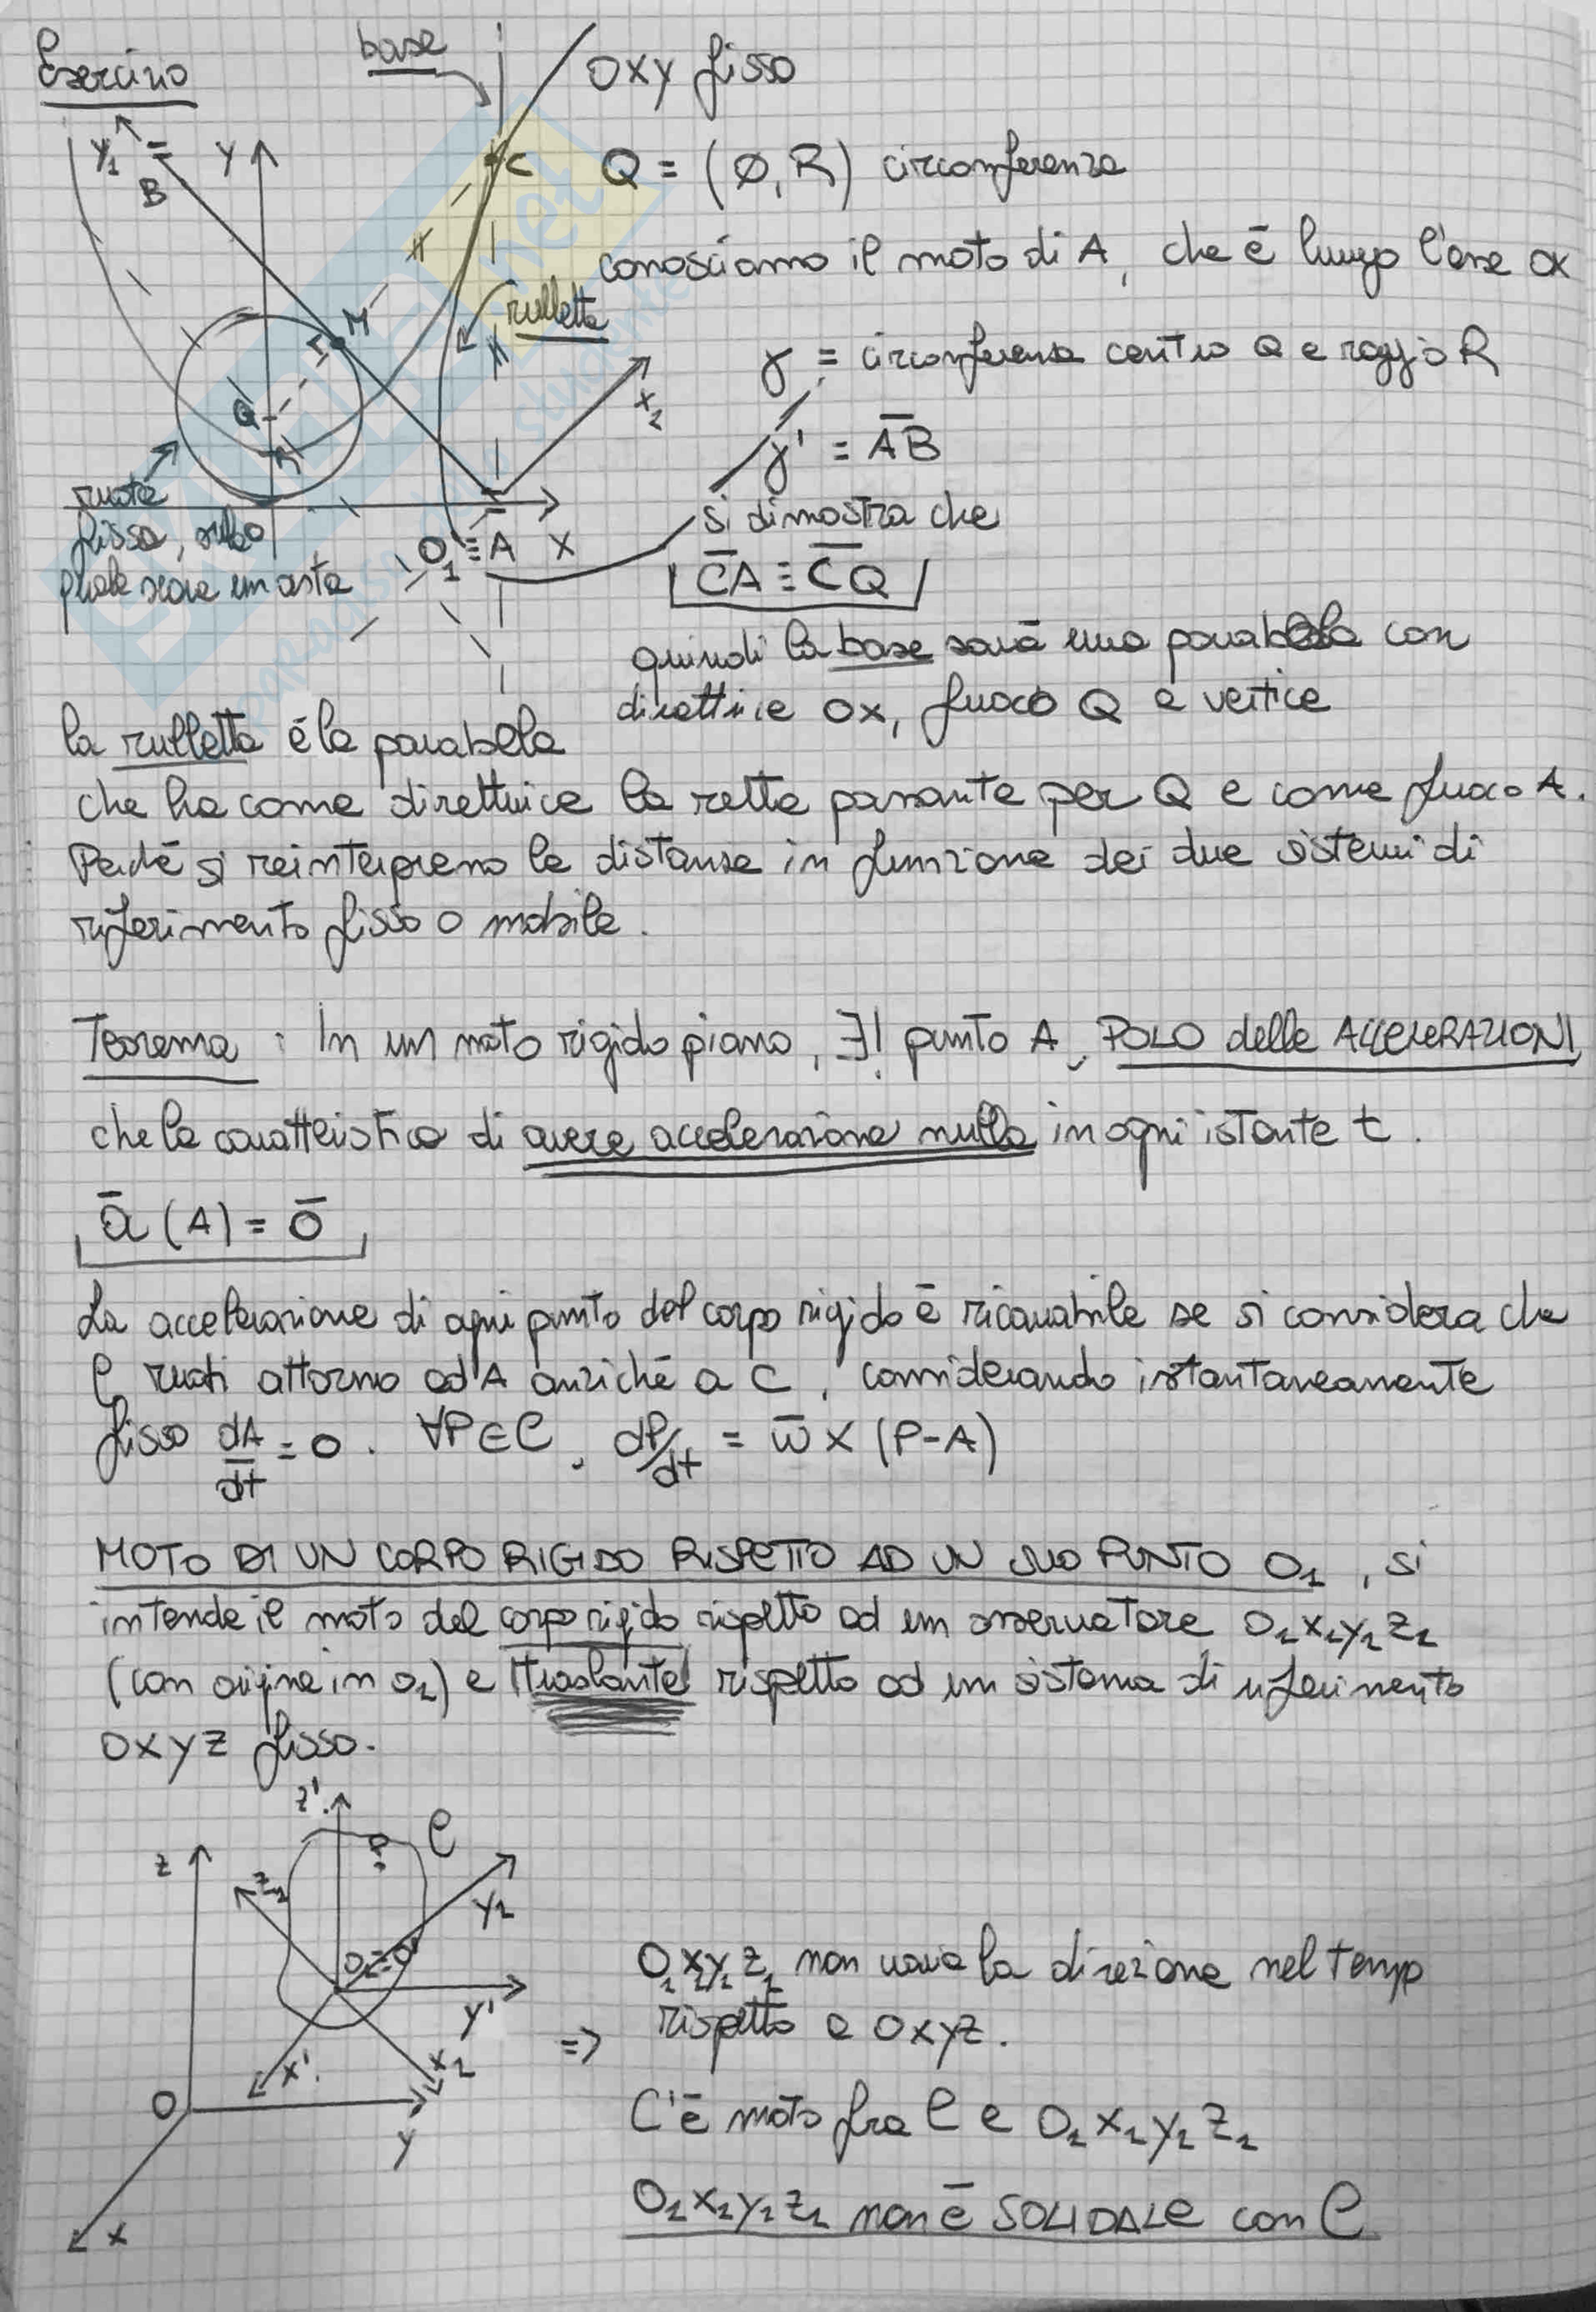 Esercizio
base
OXY fisso
Y₁
B
Y
C
Q = (∅, R) circonferenza
conosciamo il moto di A, che è lungo l'asse OX
rulletta
M
γ = circonferenza centro Q e raggio R
X₁
Q
R
γ' = AB
ruota
fissa, sulla
quale scivola un'asta
O₁≡A X
si dimostra che
CA ≡ CQ
quindi la base sarà una parabola con
direttrice OX, fuoco Q e vertice
la rulletta è la parabola
che ha come direttrice la retta passante per Q e come fuoco A.
Perché si reinterpreno le distanze in funzione dei due sistemi di
riferimento fisso o mobile.
Teorema : In un moto rigido piano, ∃! punto A, POLO delle ACCELERAZIONI,
che la caratteristica di avere accelerazione nulla in ogni istante t.
ā (A) = ō
La accelerazione di ogni punto del corpo rigido è ricavabile se si considera che
C ruoti attorno ad A anziché a C, considerando istantaneamente
fisso dA/dt = 0. ∀P∈C, dP/dt = ω̄ × (P-A)
MOTO DI UN CORPO RIGIDO RISPETTO AD UN SUO PUNTO O₁, si
intende il moto del corpo rigido rispetto ad un osservatore O₁x₁y₁z₁
(con origine in O₁) e traslante rispetto ad un sistema di riferimento
OXYZ fisso.
z'
C
P
z
z₁
y₁
O₁≡O'
y'
x'
x₁
O
y
x
O₁x₁y₁z₁ non varia la direzione nel tempo
=> rispetto a OXYZ.
C'è moto fra C e O₁x₁y₁z₁
O₁x₁y₁z₁ non è SOLIDALE con C